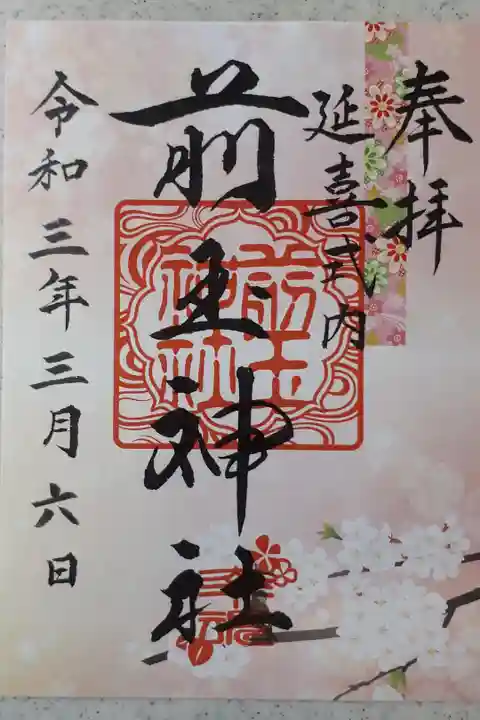 奉拝
延喜式内
前玉神社
前玉
神社
令和三年三月六日